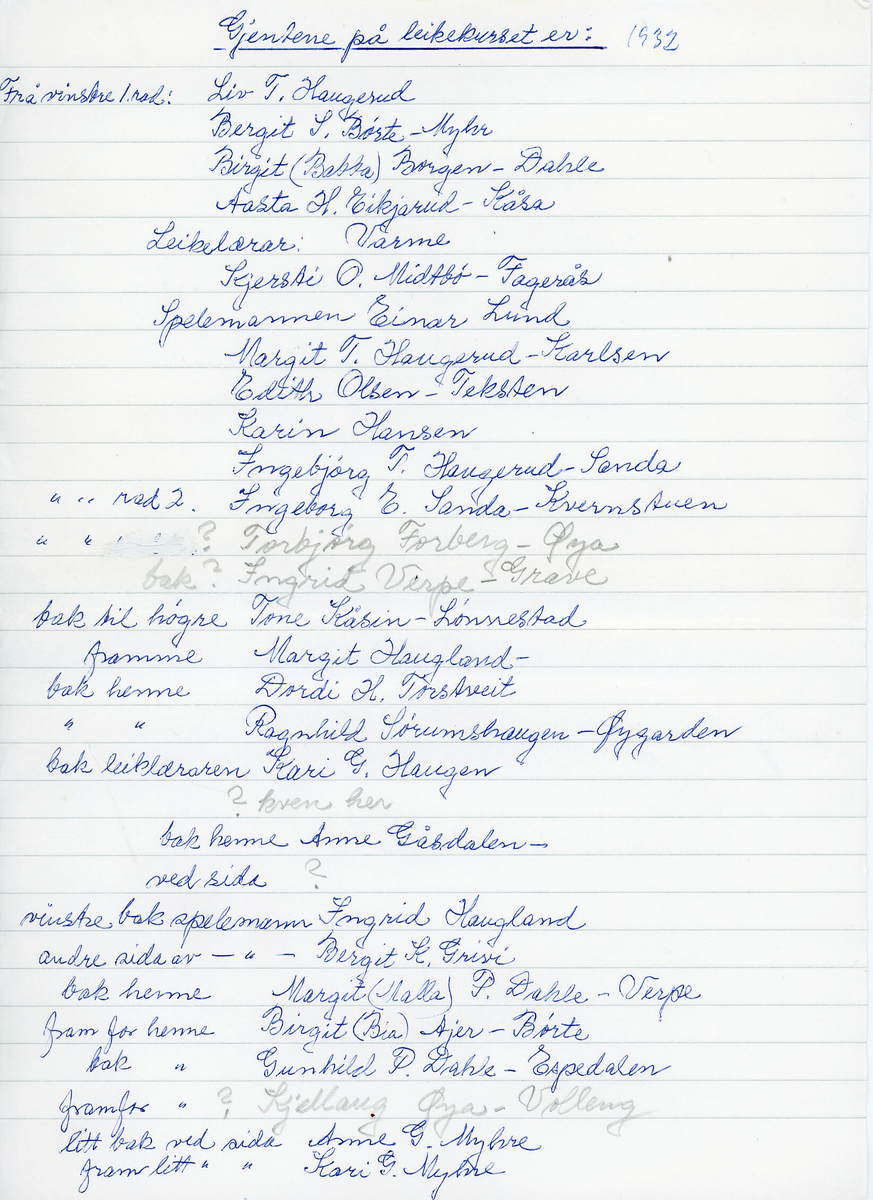 Gjentene på leikekurset er: 1932
Frå vinstre 1. rad: Liv T. Haugerud
Bergit S. Børte-Myhr
Birgit (Babba) Borgen - Dahle
Aasta H. Eikjarud - Kåsa
Leikelærar: Varme
Kjersti O. Midtbø - Fagerås
Spelemannen Einar Lund
Margit T. Haugerud - Karlsen
Edith Olsen - Teksten
Karin Hansen
Ingebjørg T. Haugerud - Sanda
" " rad 2. Ingeborg E. Sanda - Kvernstuen
" " ? Torbjørg Forberg - Øya
bak ? Ingrid Verpe - Grave
bak til høgre Tone Kåsin - Lønnestad
framme Margit Haugland -
bak henne Dordi H. Torstveit
" " Ragnhild Sørumshaugen - Øygarden
bak leiklæraren Kari G. Haugen
? kven her
bak henne Anne Gåsdalen -
ved sida ?
vinstre bak spelemann Ingrid Haugland
andre sida av - " - Bergit K. Grivi
bak henne Margit (Malla) P. Dahle - Verpe
fram for henne Birgit (Bia) Ajer - Børte
bak " Gunhild P. Dahle - Espedalen
framfor " ? Kjellaug Øya - Volleng
litt bak ved sida Anne G. Myhre
fram litt " " Kari G. Myhre